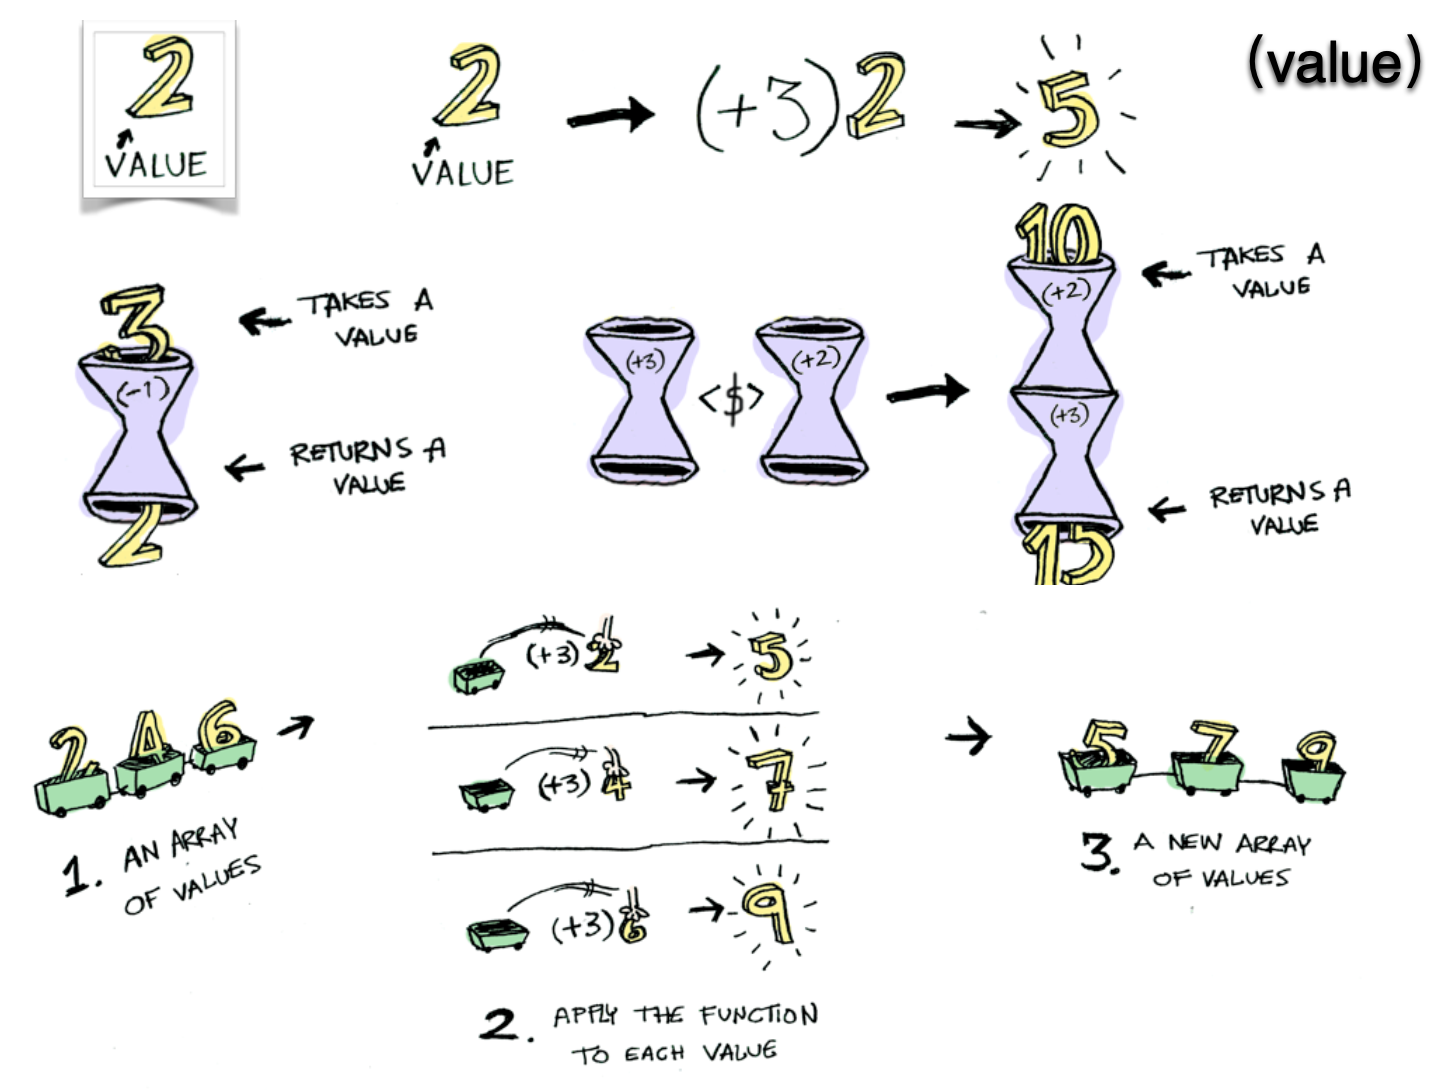 2
VALUE
2
VALUE
(+3) 2
5
(value)
3
TAKES A
VALUE
(-1)
RETURNS A
VALUE
2
(+3)
<$>
(+2)
10
TAKES A
VALUE
(+2)
(+3)
RETURNS A
VALUE
15
2 4 6
1. AN ARRAY
OF VALUES
(+3) 2
5
(+3) 4
7
(+3) 6
9
2. APPLY THE FUNCTION
TO EACH VALUE
5 7 9
3. A NEW ARRAY
OF VALUES